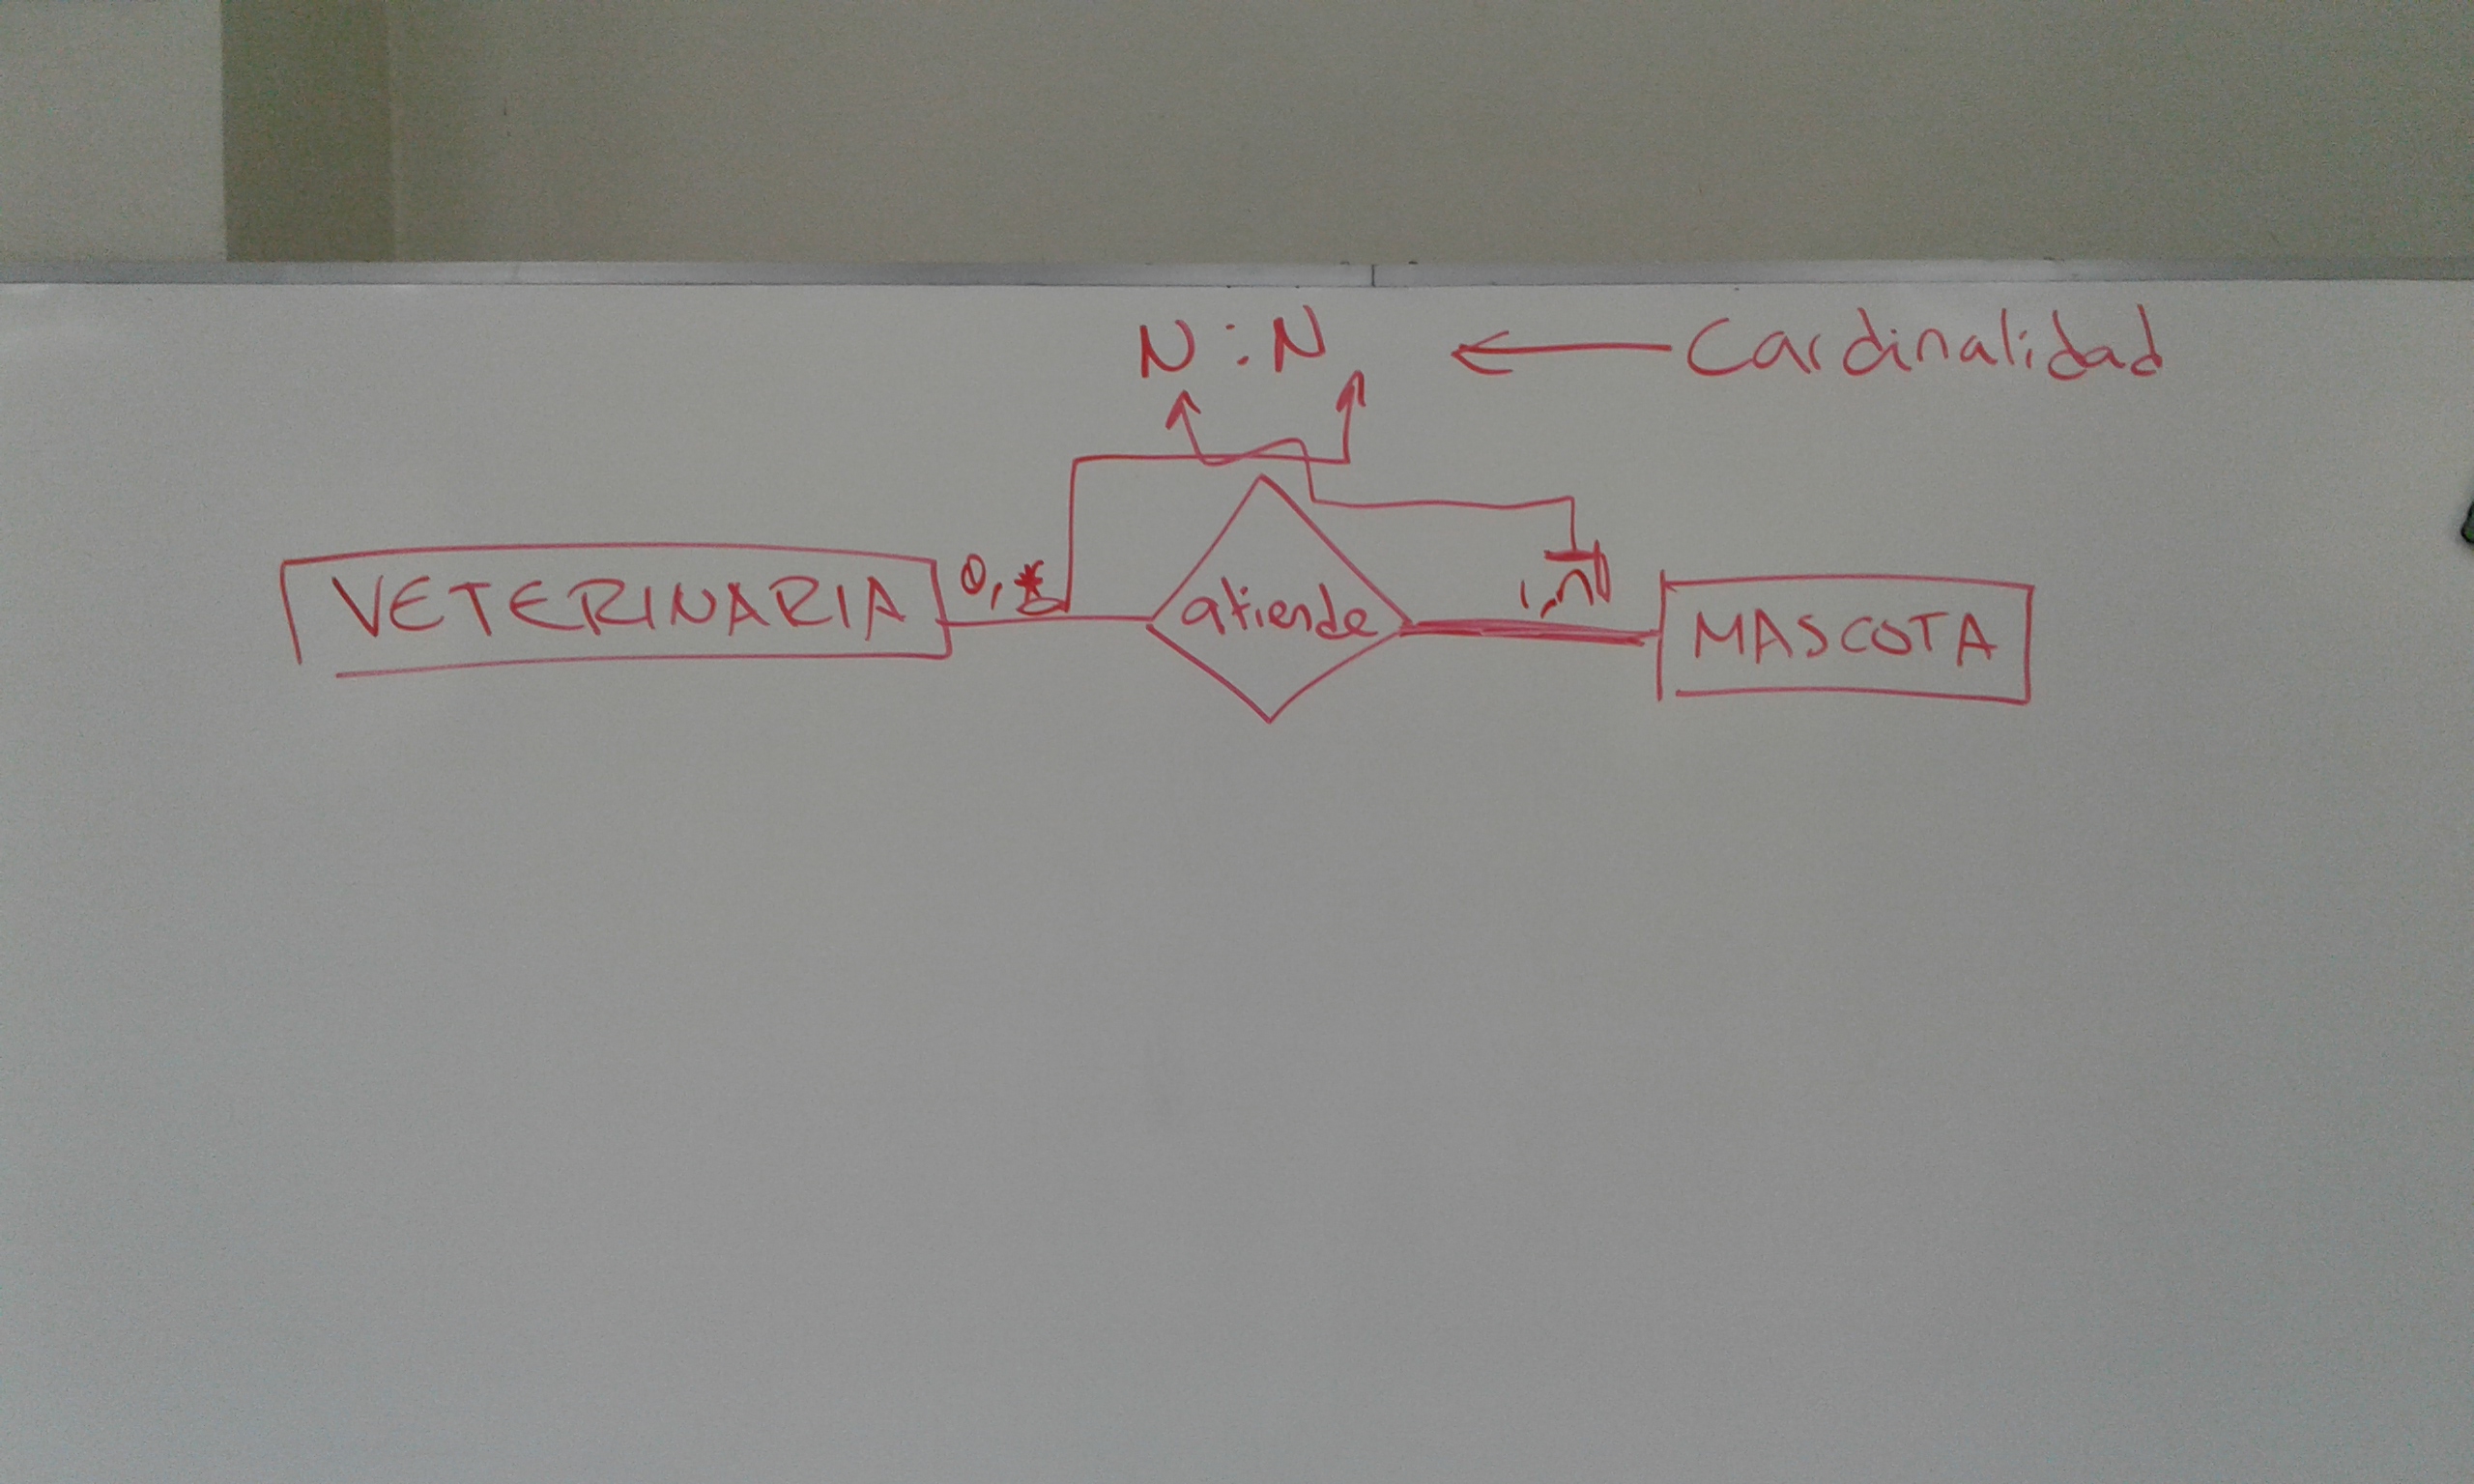 N:N ← Cardinalidad
VETERINARIA 0,* atiende 1,n MASCOTA